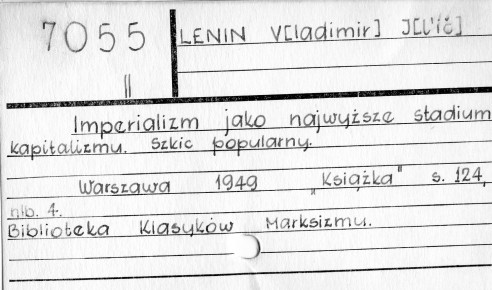 7055
||
LENIN V[ladimir] J[l'ič]
Imperializm jako najwyższe stadium
kapitalizmu. Szkic popularny.
Warszawa 1949 „Książka" s. 124,
nlb. 4.
Biblioteka Klasyków Marksizmu.